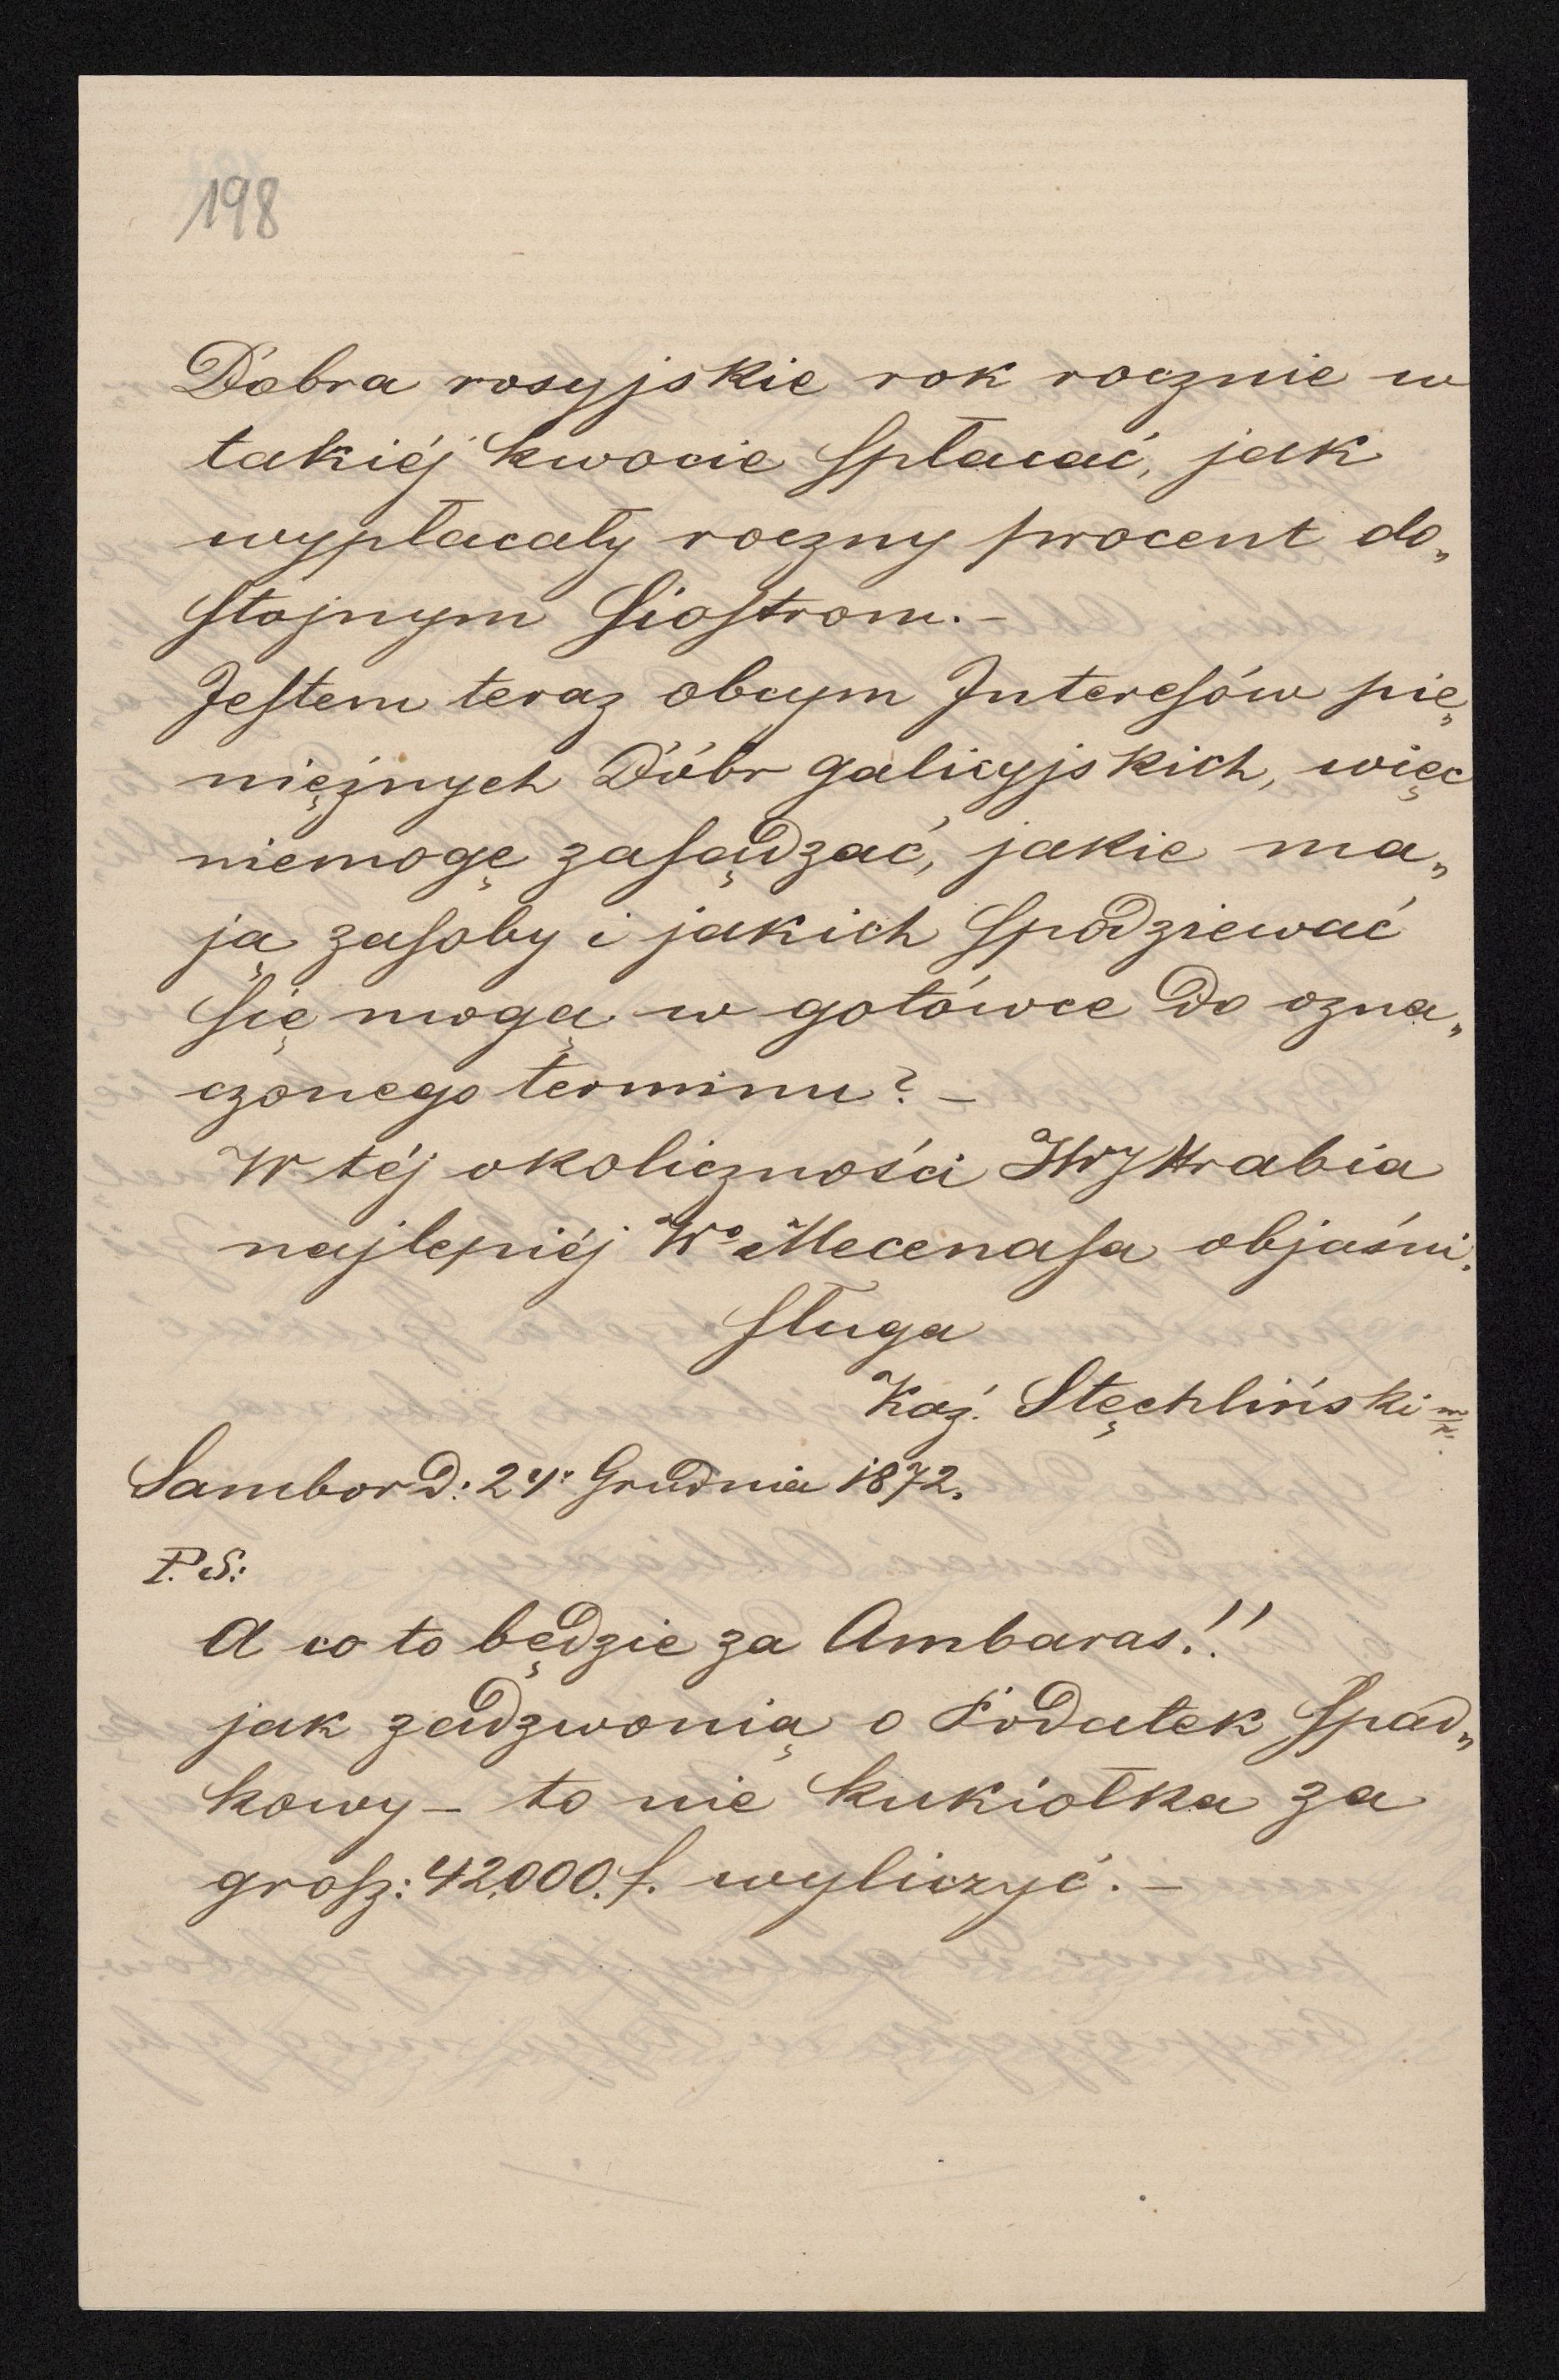 198
Dobra rosyjskie rok rocznie w
takiéj kwocie spłacać, jak
wypłacały roczny procent do„
stojnym Siostrom.–
Jestem teraz obcym Interesów pie„
niężnych Dóbr galicyjskich, więc
niemogę zasądzać, jakie ma„
ją zasoby i jakich spodziewać
się mogą w gotówce do ozna„
czonego terminu? –
W téj okoliczności JWJ Hrabia
najlepiéj Wo Mecenasa objaśni.
sługa
Kaź. Stęchliński m/p.
Sambor d: 24. Grudnia 1872.
P.S:
A co to będzie za Ambaras!!
jak zadzwonią o Podatek spad„
kowy – to nie kukiołka za
grosz: 42,000.f. wyliczyć. –